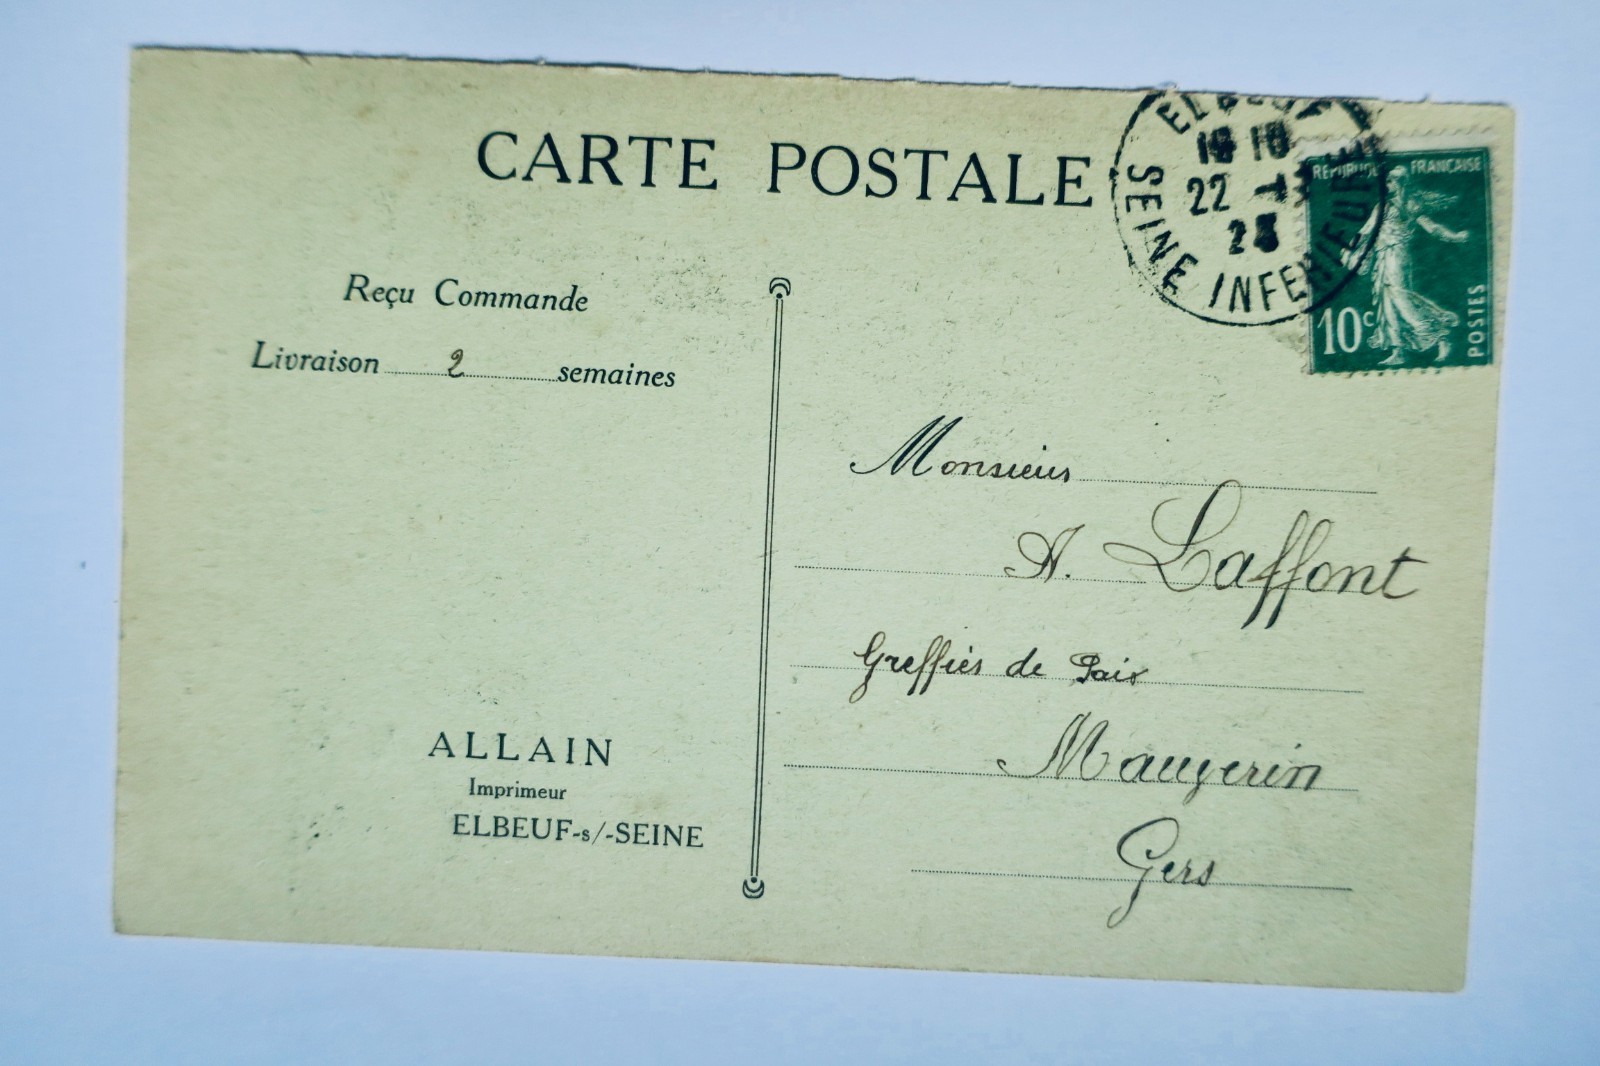 CARTE POSTALE
ELBEUF
22
SEINE INFERIEURE
REPUBLIQUE FRANCAISE
10c
POSTES
Reçu Commande
Livraison 2 semaines
Monsieur
A. Laffont
Greffier de Paix
Gers
ALLAIN
Imprimeur
ELBEUF-s/-SEINE